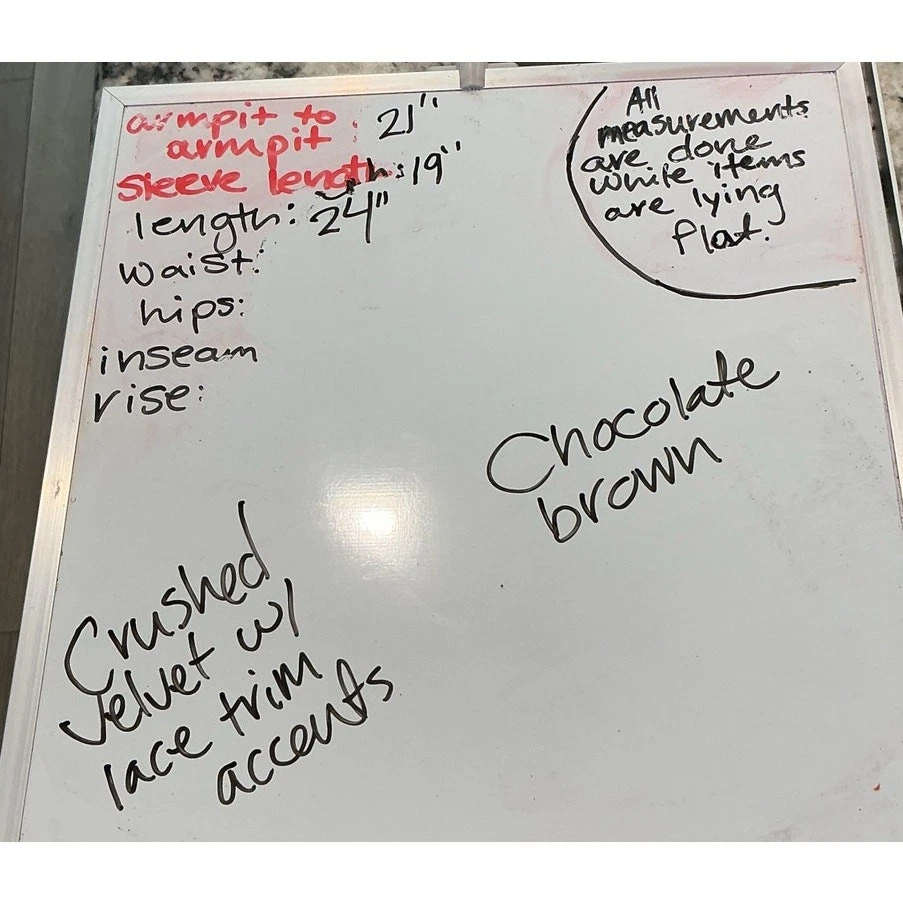 armpit to
armpit : 21"
sleeve length: 19"
length: 24"
waist:
hips:
inseam
rise:
All
measurements
are done
while items
are lying
flat.
Chocolate
brown
Crushed
velvet w/
lace trim
accents